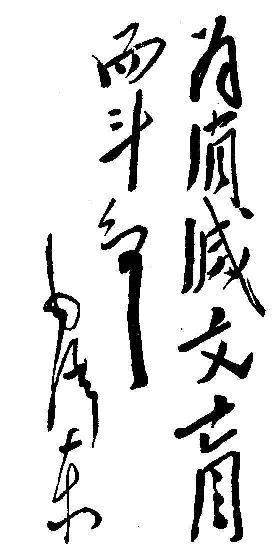 为消滅文盲
而斗争
毛泽东